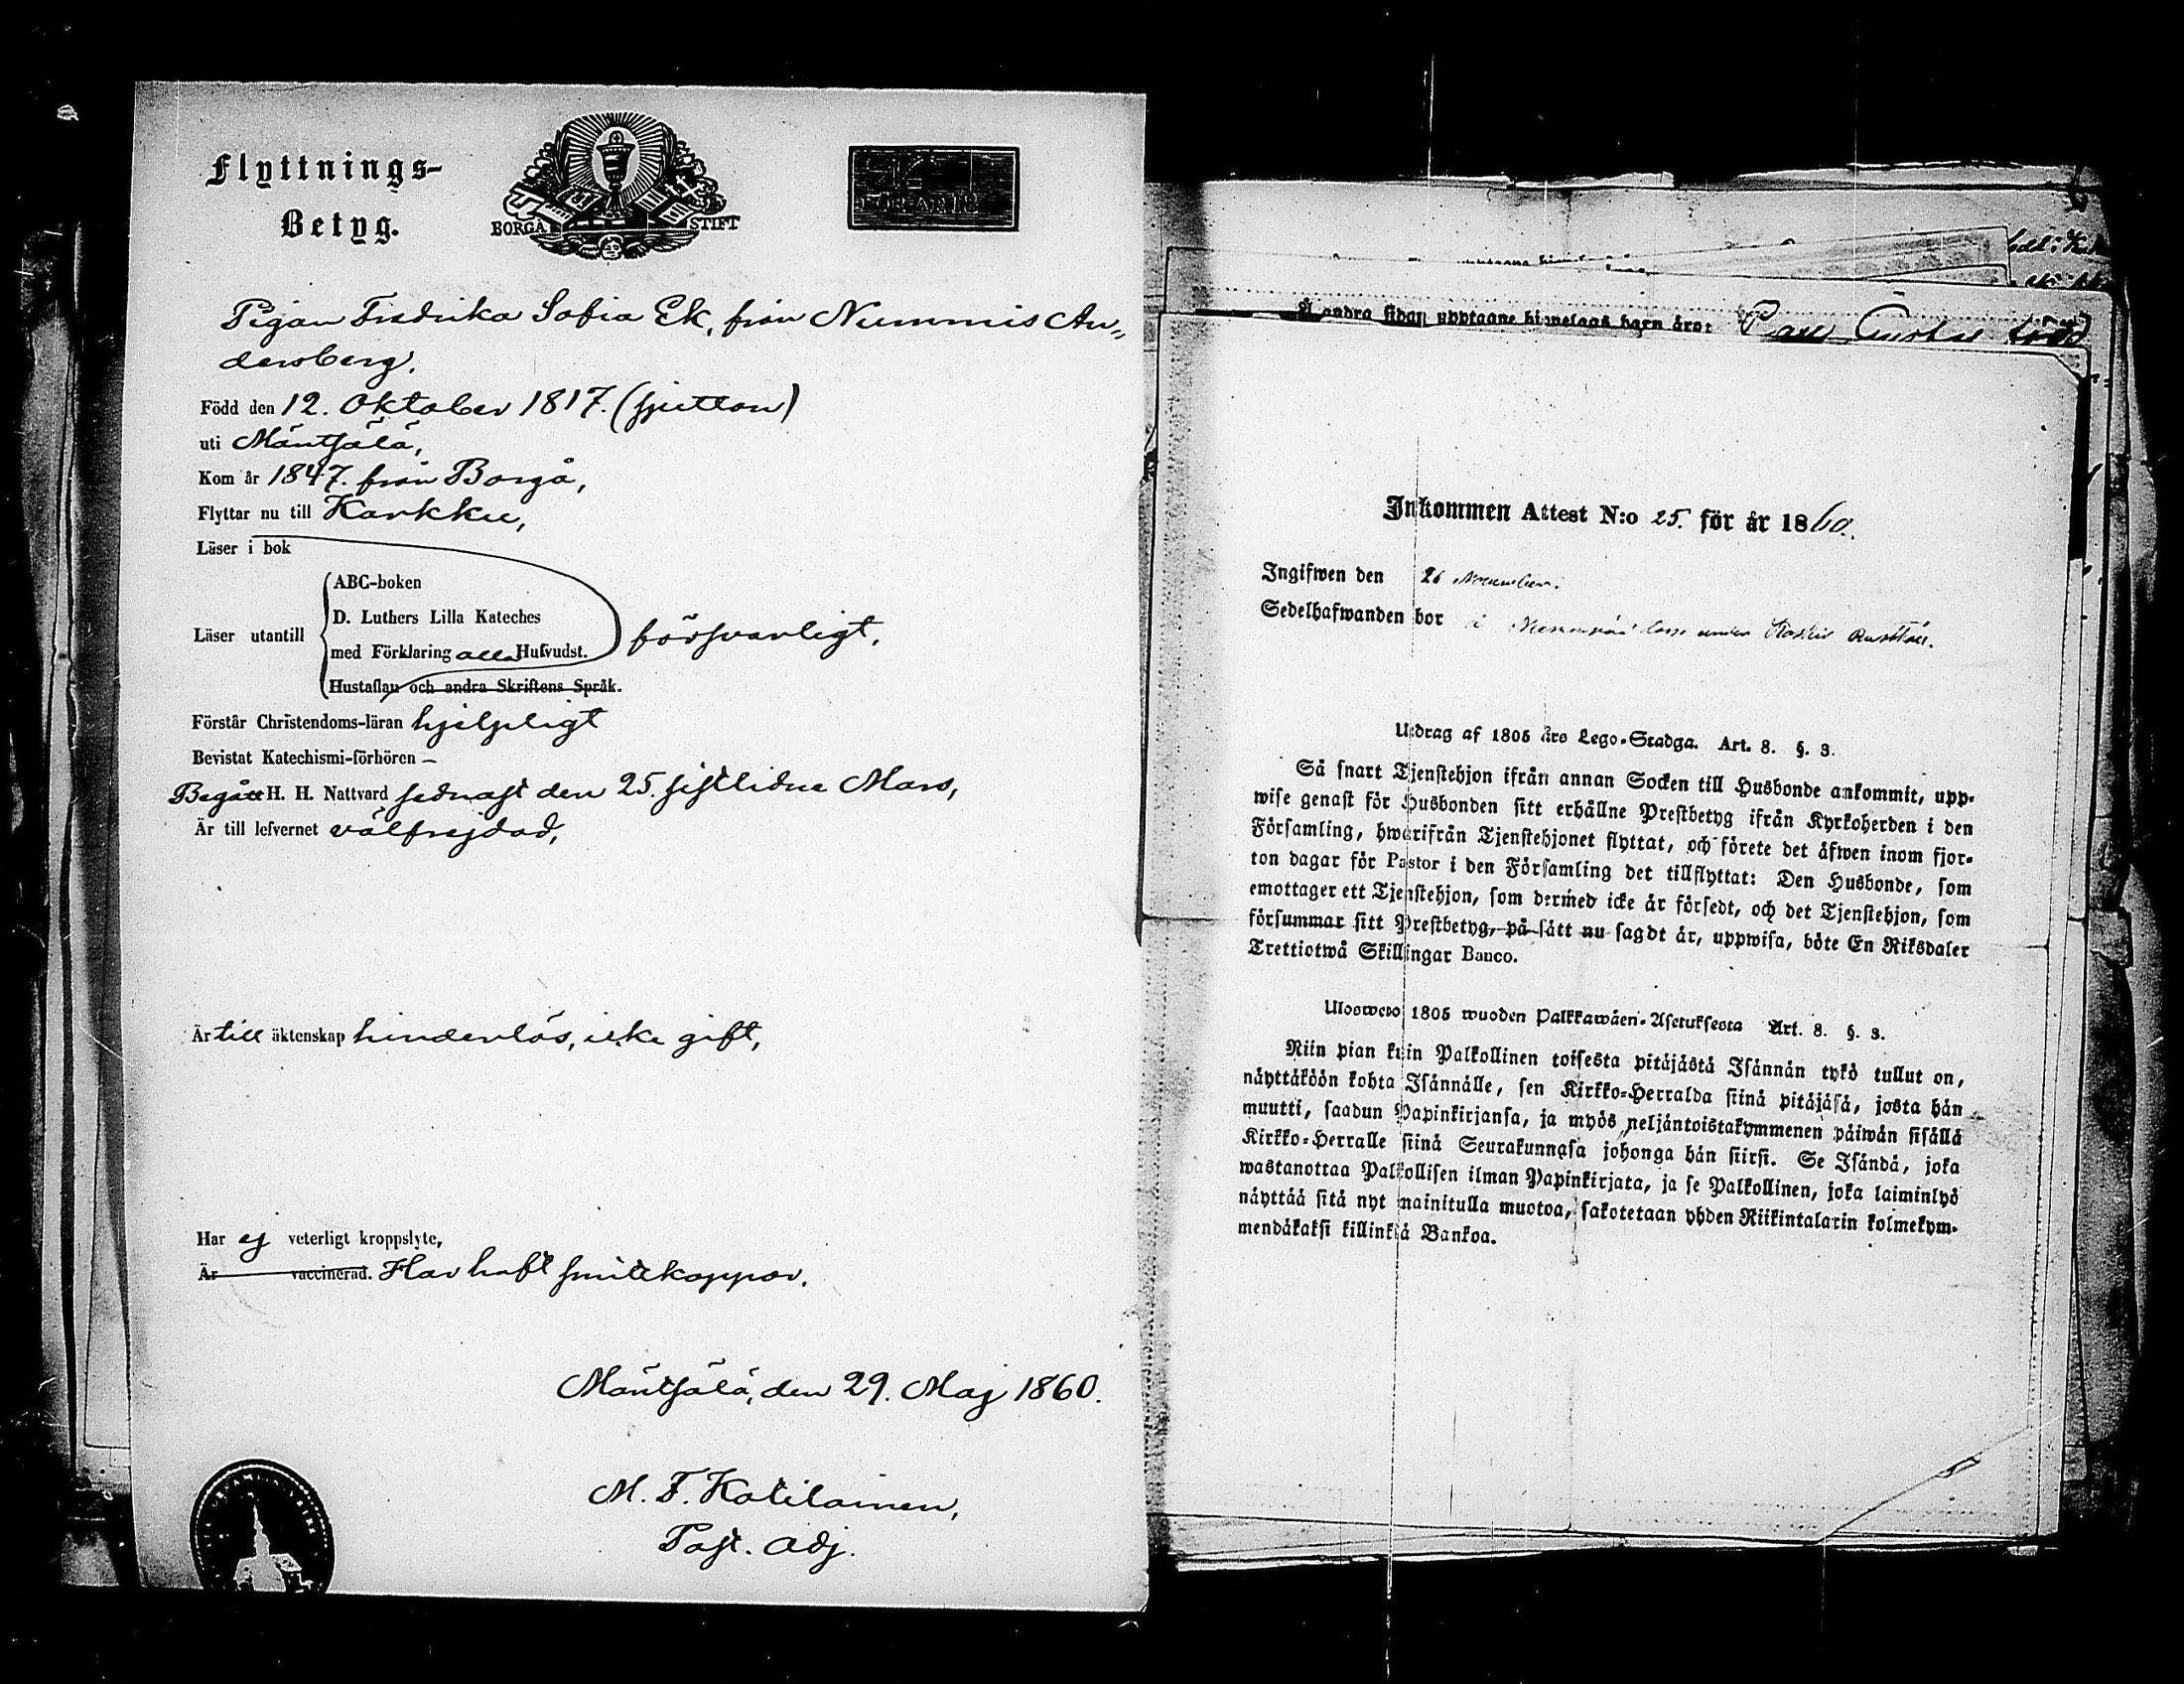 Flyttnings-
Betyg.
BORGÅ STIFT
Pigan Fredrika Sofia Ek, från Nummis An„
dersberg.
Född den 12. Oktober 1817. (sjutton)
uti Mäntsälä,
Kom år 1847. från Borgå,
Flyttar nu till Karkku,
Läser i bok
Läser utantill
ABC-boken
D. Luthers Lilla Kateches
med Förklaring alla Hufvudst.
Hustaflan och andra Skriftens Språk.
försvarligt,
Förstår Christendoms-läran hjelpligt
Bevistat Katechismi-förhören —
Begått H. H. Nattvard sednast den 25. sistlidne Mars,
Är till lefvernet välfrejdad,
Är till äktenskap hinderlös, icke gift,
Har ej veterligt kroppslyte,
Är vaccinerad. Har haft smittkoppor.
Mäntsälä, den 29. Maj 1860.
M. F. Kotilainen,
Past. Adj.
Å andra sidan upptagne hionelags barn äro:
Inkommen Attest N:o 25. för år 1860.
Ingifwen den 26 November.
Sedelhafwanden bor i under
Utdrag af 1805 års Lego-Stadga. Art. 8. §. 3.
Så snart Tjenstehjon ifrån annan Socken till Husbonde ankommit, upp-
wise genast för Husbonden sitt erhållne Prestbetyg ifrån Kyrkoherden i den
Församling, hwarifrån Tjenstehjonet flyttat, och förete det äfwen inom fjor-
ton dagar för Pastor i den Församling det tillflyttat: Den Husbonde, som
emottager ett Tjenstehjon, som dermed icke är försedt, och det Tjenstehjon, som
försummar sitt Prestbetyg, på sätt nu sagdt är, uppwisa, böte En Riksdaler
Trettiotwå Skillingar Banco.
Ulosweto 1805 wuoden Palkkawäen-Asetuksesta Art. 8. §. 3.
Niin pian kuin Palkollinen toisesta pitäjästä Isännän tykö tullut on,
näyttäköön kohta Isännälle, sen Kirkko-Herralda siinä pitäjäsä, josta hän
muutti, saadun Papinkirjansa, ja myös neljäntoistakymmenen päiwän sisällä
Kirkko-Herralle siinä Seurakunnasa johonga hän siirsi. Se Isändä, joka
wastanottaa Palkollisen ilman Papinkirjata, ja se Palkollinen, joka laiminlyö
näyttää sitä nyt mainitulla muotoa, sakotetaan yhden Riikintalarin kolmekym-
mendäkaksi killinkiä Bankoa.